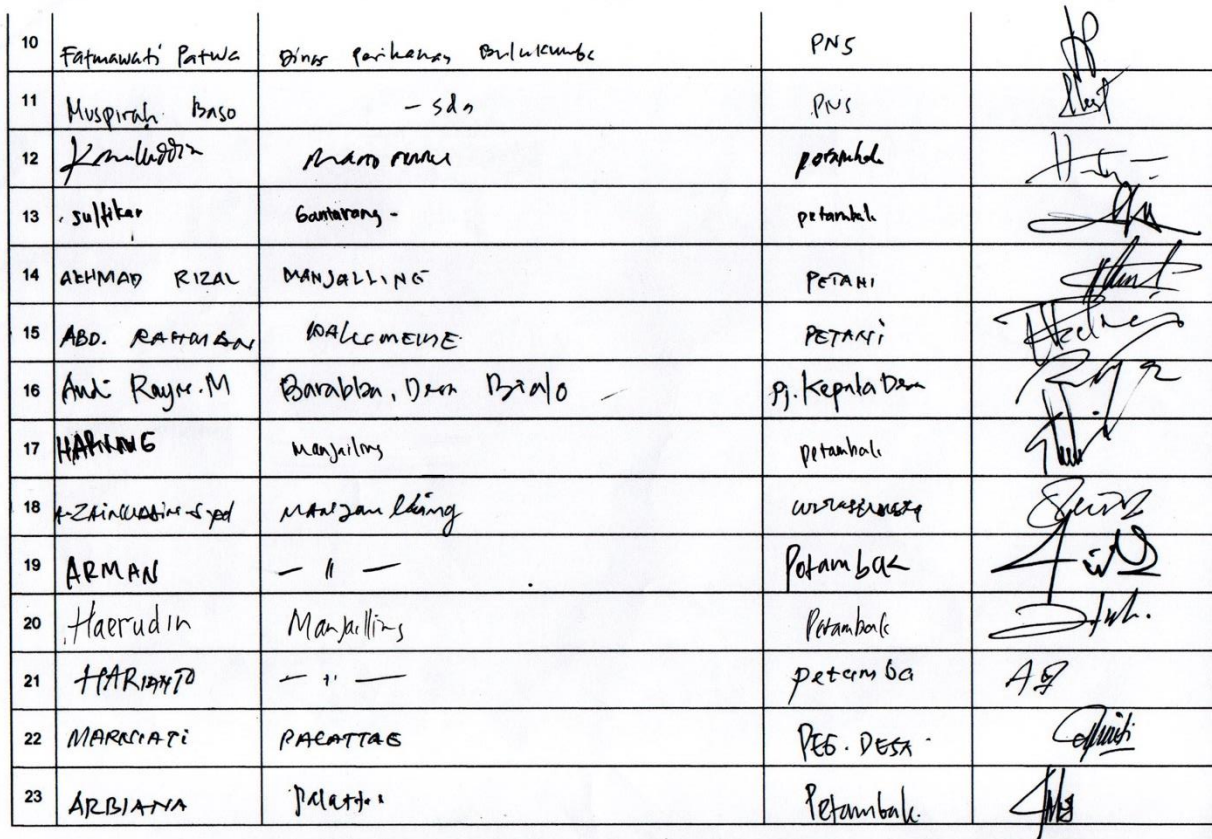 10 Fatmawati Patwa Dinas Perikanan Bulukumba PNS
11 Muspirah Baso - sda PNS
12 Kamaluddin petambak
13 Sulfikar Gantarang - petambak
14 AKHMAD RIZAL MANJALLING PETANI
15 ABD. RAHMAN PETANI
16 Andi Rayu. M Barabba, Desa Bialo Pj. Kepala Desa
17 Manjalling petambak
18 wiraswasta
19 ARMAN — " — Potambak
20 Haerudin Manjalling Petambak
21 HARIANTO — " — petamba
22 MARNIATI PALATTAE PEG. DESA
23 ARBIANA Palattae Petambak